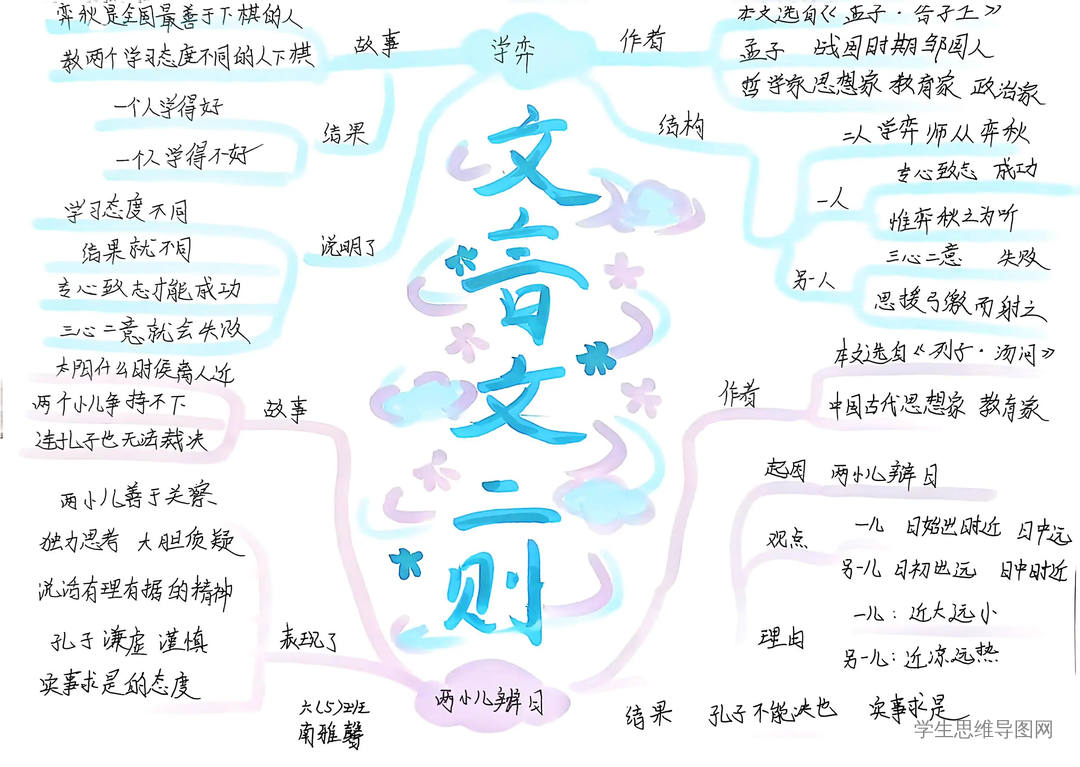 学弈
故事
弈秋是全国最善于下棋的人
教两个学习态度不同的人下棋
结果
一个人学得好
一个人学得不好
说明了
学习态度不同
结果就不同
专心致志才能成功
三心二意就会失败
作者
本文选自《孟子·告子上》
孟子 战国时期邹国人
哲学家思想家 教育家 政治家
结构
二人学弈师从弈秋
一人
专心致志 成功
惟弈秋之为听
另一人
三心二意 失败
思援弓缴而射之
文言文二则
两小儿辩日
故事
太阳什么时候离人近
两个小儿争持不下
连孔子也无法裁决
表现了
两小儿善于观察
独力思考 大胆质疑
说话有理有据的精神
孔子谦虚 谨慎
实事求是的态度
作者
本文选自《列子·汤问》
中国古代思想家 教育家
起因 两小儿辩日
观点
一儿 日始出时近 日中远
另一儿 日初出远 日中时近
理由
一儿:近大远小
另一儿:近凉远热
结果 孔子不能决也 实事求是
六(5)班
南雅馨
学生思维导图网